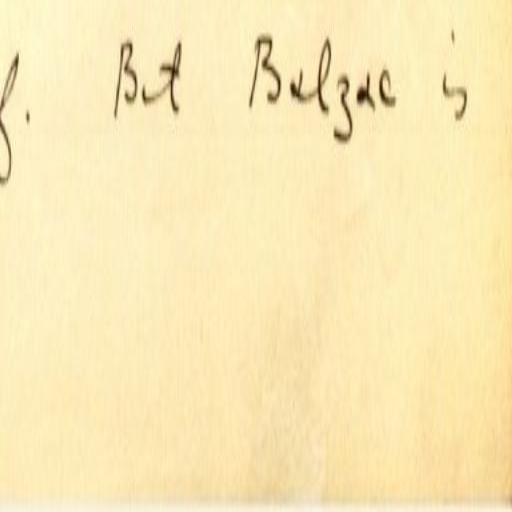 f. But Balzac is